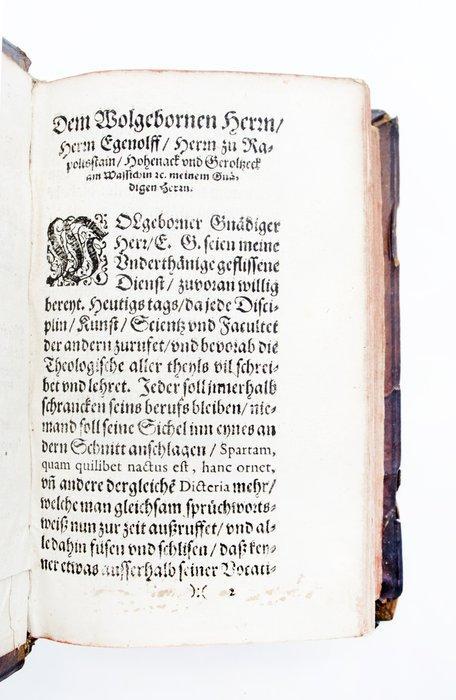 Dem Wolgebornen Herrn/
Herrn Egenolff/ Herrn zu Ra-
poltzstain/ Hohenack vnd Geroltzeck
am Wassichin ꝛc. meinem Gnä-
digen Herrn.
WOLgeborner Gnädiger
Herr/ E. G. seien meine
Vnderthänige geflissene
Dienst/ zuvoran willig
bereyt. Heutigs tags/ da jede Disci-
plin/ Kunst/ Scientz vnd Facultet
der andern zurufet/ vnd bevorab die
Theologische aller theyls vil schrei-
bet vnd lehret. Jeder soll innerhalb
schrancken seins berufs bleiben/ nie-
mand soll seine Sichel inn eynes an
dern Schnitt anschlagen/ Spartam,
quam quilibet nactus est, hanc ornet,
vñ andere dergleichẽ Dicteria mehr/
welche man gleichsam sprüchworts-
weiß nun zur zeit außruffet/ vnd al-
le dahin füsen vnd schlisen/ daß key-
ner etwas ausserhalb seiner Vocati-
):( 2